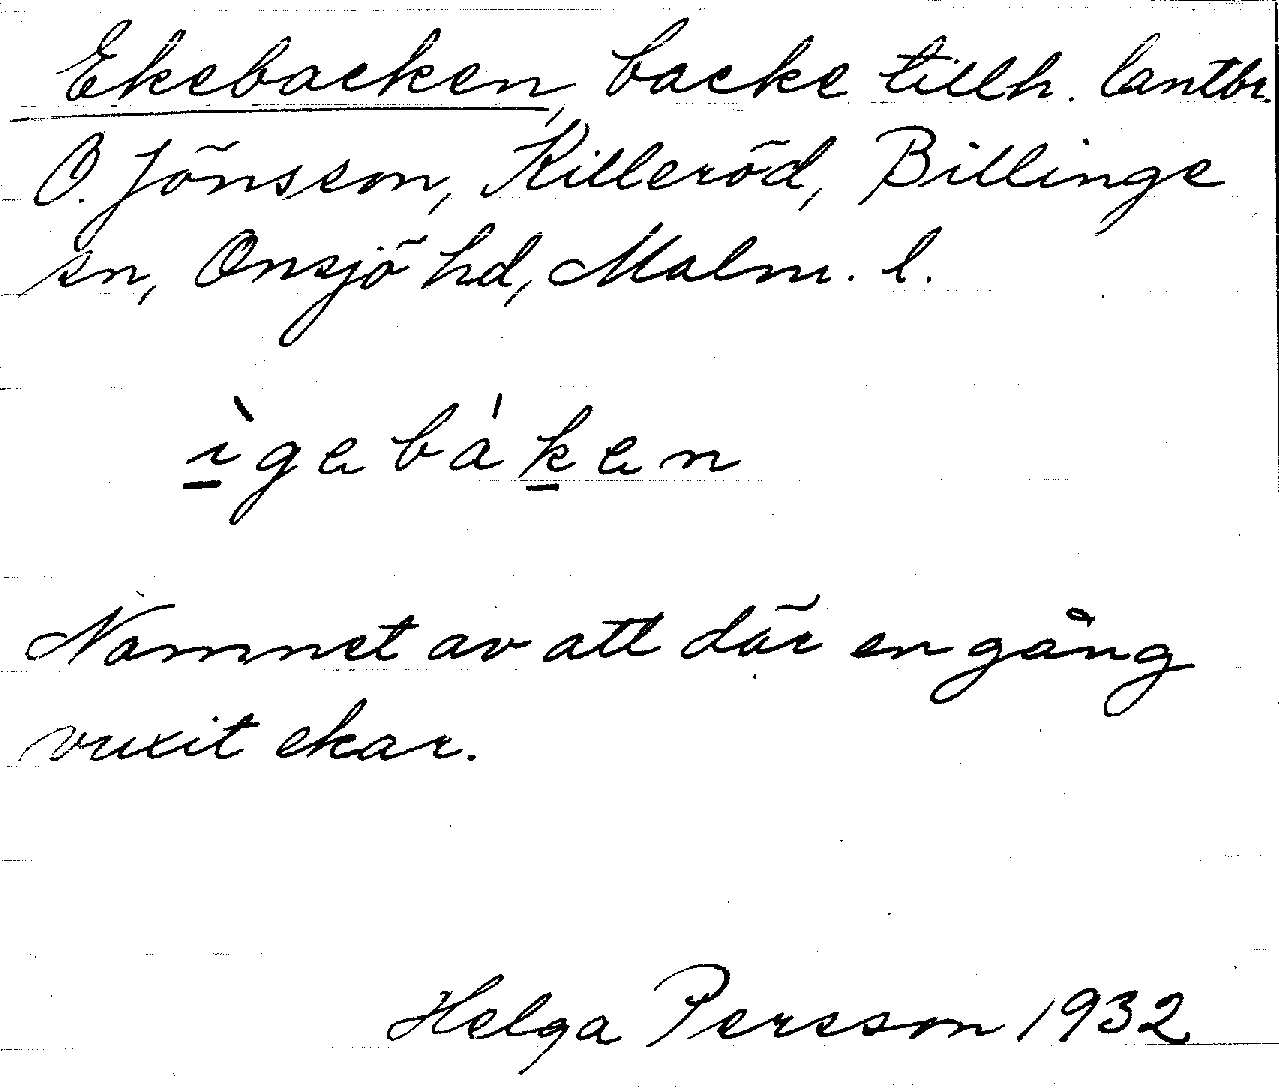 Ekebacken, backe tillh. lantbr.
O. Jönsson, Killeröd, Billinge
sn, Onsjö hd, Malm. l.
ìgebáken
Namnet av att där en gång
vuxit ekar.
Helga Persson 1932